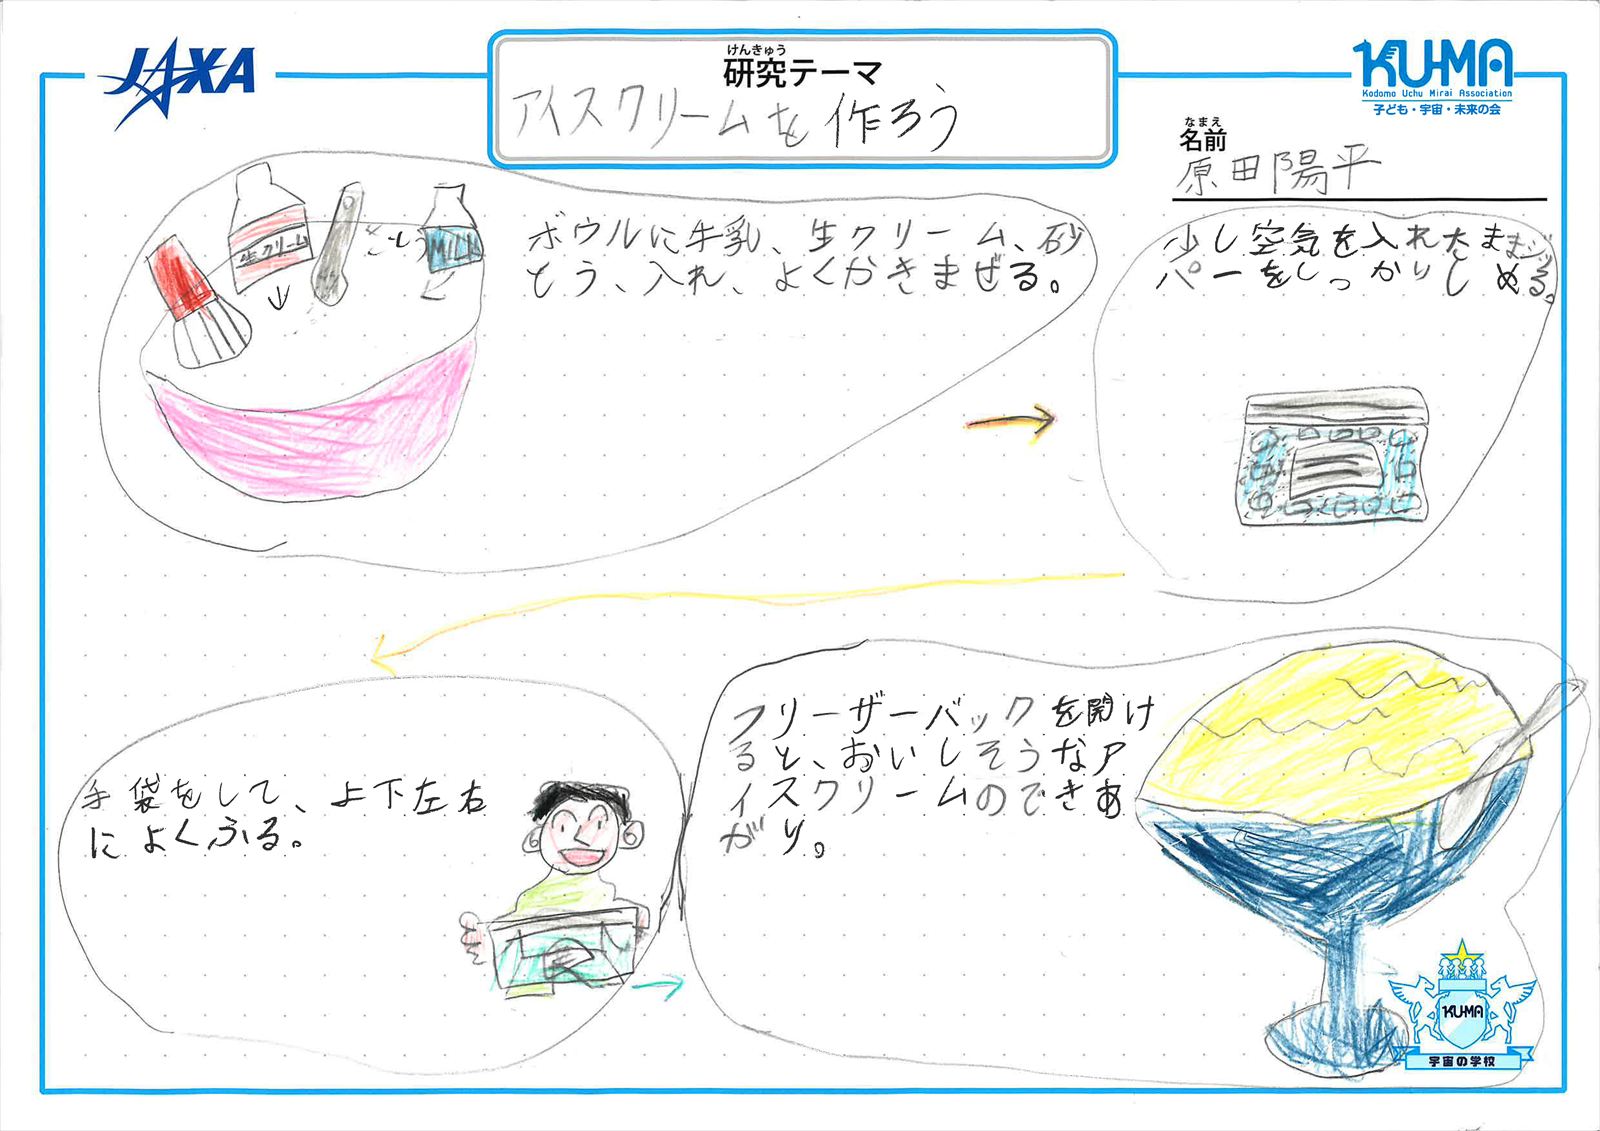 JAXA
けんきゅう
研究テーマ
アイスクリームを作ろう
KU-MA
Kodomo Uchu Mirai Association
子ども・宇宙・未来の会
なまえ
名前
原田陽平
生クリーム
MILK
ボウルに牛乳、生クリーム、砂
とう、入れ、よくかきまぜる。
少し空気を入れたままジッ
パーをしっかりしめる。
手袋をして、上下左右
によくふる。
フリーザーバックを開け
ると、おいしそうなア
イスクリームのできあ
がり。
KU-MA
宇宙の学校